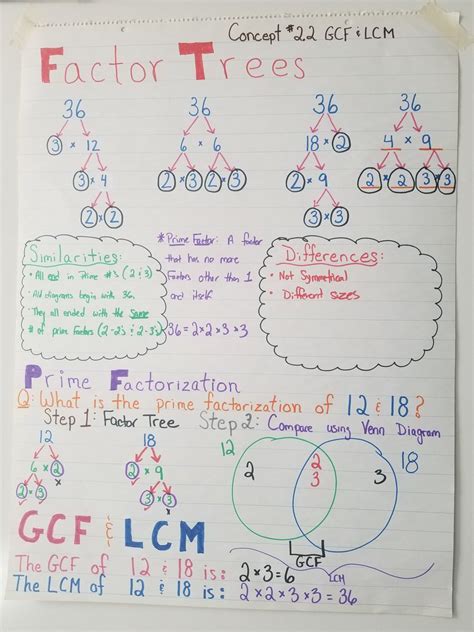 Concept #2.2 GCF & LCM
Factor Trees
36 36 36 36
3 × 12 6 × 6 18 × 2 4 × 9
3 × 4 2 × 3 2 × 3 2 × 9 2 × 2 3 × 3
2 × 2 3 × 3
Similarities:
• All end in Prime #s (2 & 3)
• All diagrams begin with 36.
• They all ended with the Same
# of prime Factors (2-2's & 2-3's)
*Prime Factor: A factor
that has no more
Factors other than 1
and itself
36 = 2 × 2 × 3 × 3
Differences:
• Not Symmetrical
• Different sizes
Prime Factorization
Q: What is the prime factorization of 12 & 18?
Step 1: Factor Tree Step 2: Compare using Venn Diagram
12 18
6 × 2 2 × 9
2 × 3 3 × 3
12 18
2 2 3 3
GCF
LCM
GCF & LCM
The GCF of 12 & 18 is: 2 × 3 = 6
The LCM of 12 & 18 is: 2 × 2 × 3 × 3 = 36